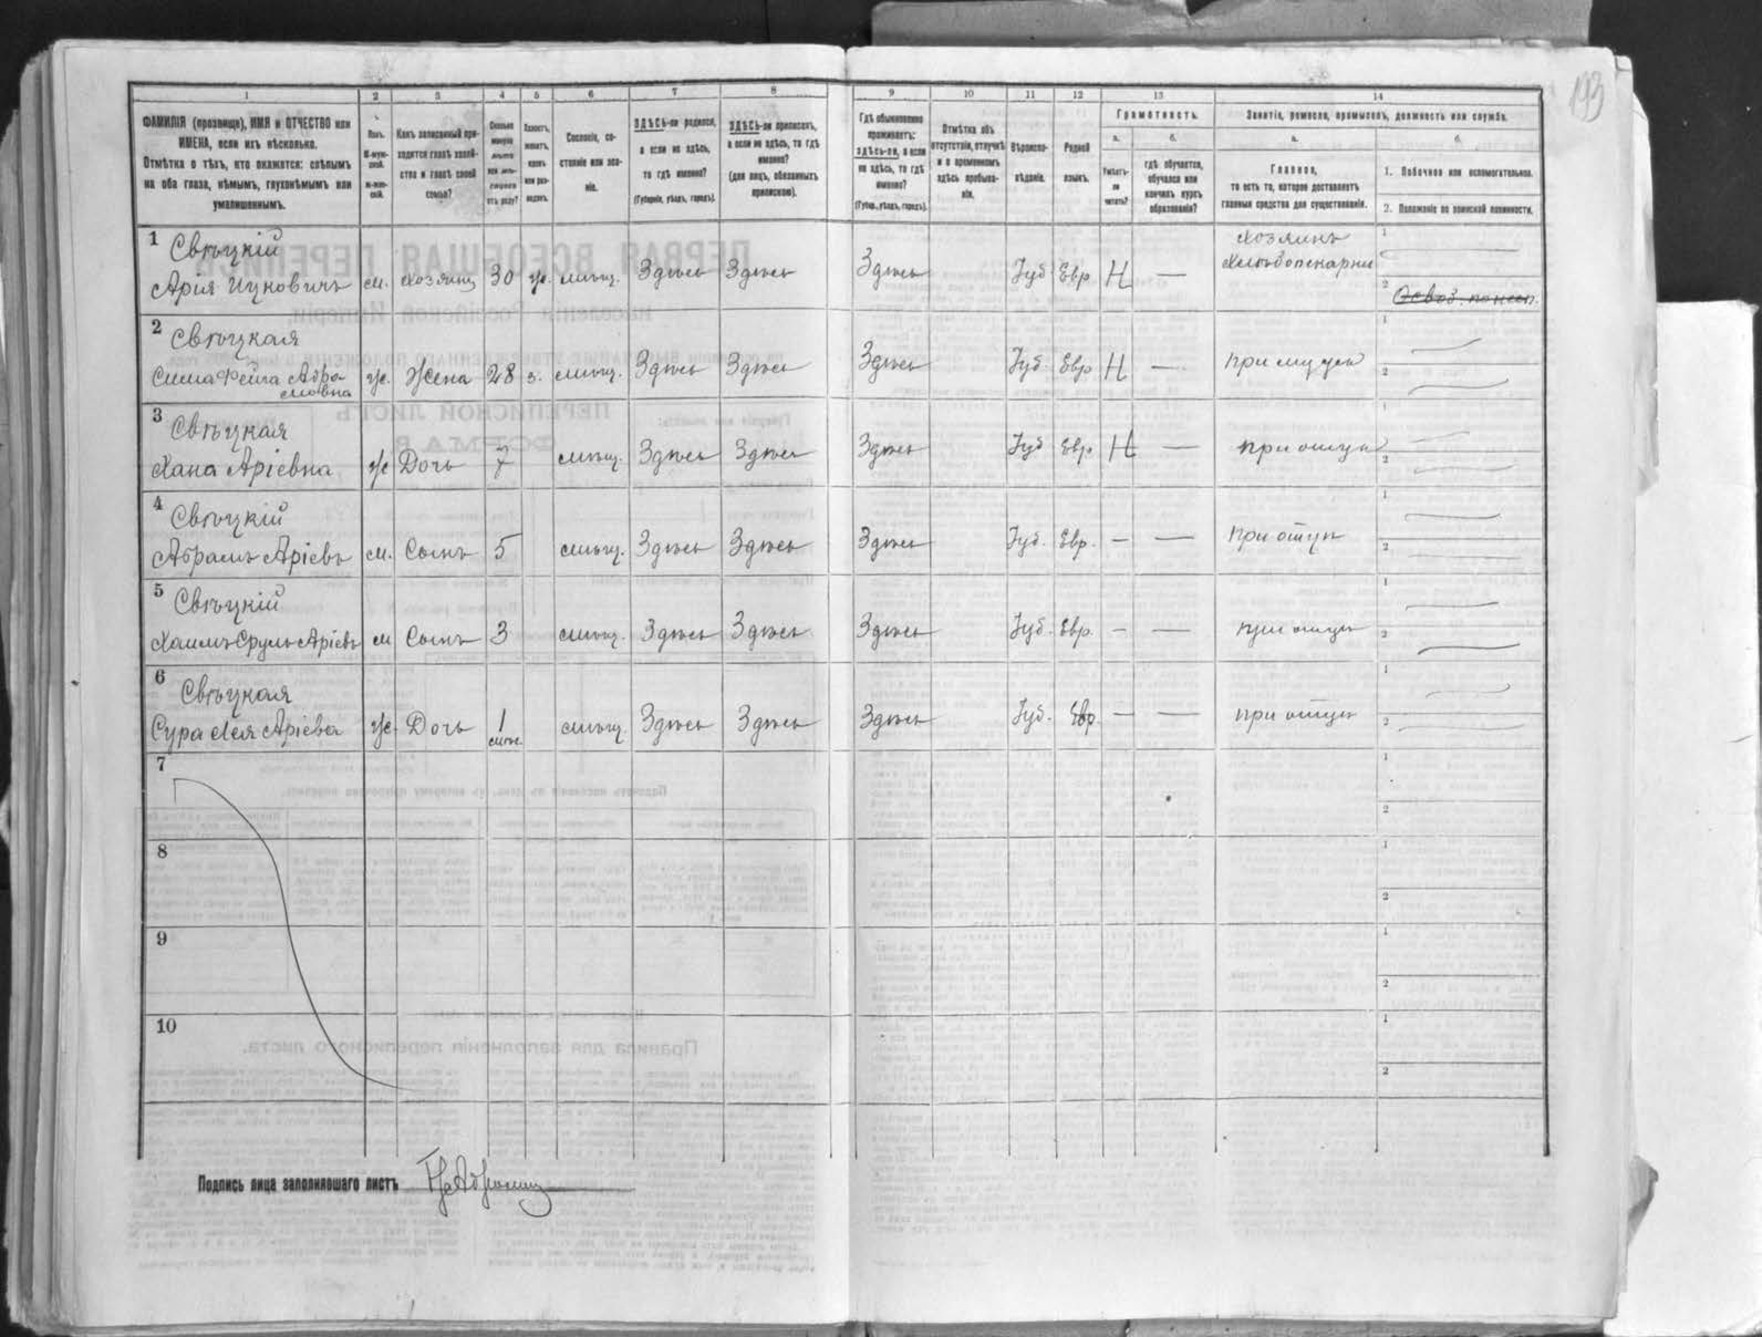 193
1 2 3 4 5 6 7 8 9 10 11 12 13 14
ФАМИЛІЯ (прозвище), ИМЯ и ОТЧЕСТВО или
ИМЕНА, если ихъ нѣсколько.
Отмѣтка о тѣхъ, кто окажется: слѣпымъ
на оба глаза, нѣмымъ, глухонѣмымъ или
умалишеннымъ.
Полъ.
М-муж-
ской.
ж-жен-
ской.
Какъ записанный при-
ходится главѣ хозяй-
ства и главѣ своей
семьи?
Сколько
минуло
лѣтъ
или мѣ-
сяцевъ
отъ роду?
Холостъ,
женатъ,
вдовъ
или раз-
веденъ.
Сословіе, со-
стояніе или зва-
ніе.
ЗДѢСЬ-ли родился,
а если не здѣсь,
то гдѣ именно?
(Губернія, уѣздъ, городъ).
ЗДѢСЬ-ли приписанъ,
а если не здѣсь, то гдѣ
именно?
(для лицъ, обязанныхъ
припискою).
Гдѣ обыкновенно
проживаетъ:
здѣсь-ли, а если
не здѣсь, то гдѣ
именно?
(Губер., уѣздъ, городъ).
Отмѣтка объ
отсутствіи, отлучкѣ
и о временномъ
здѣсь пребыва-
ніи.
Вѣроиспо-
вѣданіе.
Родной
языкъ.
Грамотность.
а.
Умѣетъ-
ли
читать?
б.
гдѣ обучается,
обучался или
кончилъ курсъ
образованія?
Занятіе, ремесло, промыселъ, должность или служба.
а.
Главное,
то есть то, которое доставляетъ
главныя средства для существованія.
б.
1. Побочное или вспомогательное.
2. Положеніе по воинской повинности.
1 Свѣцкій
Арія Ицковичъ м. хозяинъ 30 ж. мѣщ. Здѣсь Здѣсь Здѣсь Іуд Евр Н —
Хозяинъ
Хлѣбопекарни
1
2
2 Свѣцкая
Сима Фейга Абра-
мовна ж. Жена 28 з. мѣщ. Здѣсь Здѣсь Здѣсь Іуд. Евр Н — при мужѣ
1
2
3 Свѣцкая
Хана Аріевна ж Дочь 7 мѣщ. Здѣсь Здѣсь Здѣсь Іуд Евр Н — при отцѣ
1
2
4 Свѣцкій
Абрамъ Аріевъ м. Сынъ 5 мѣщ. Здѣсь Здѣсь Здѣсь Іуд. Евр. — — при отцѣ
1
2
5 Свѣцкій
Хаимъ Сруль Аріевъ м Сынъ 3 мѣщ. Здѣсь Здѣсь Здѣсь Іуд. Евр. — — при отцѣ
1
2
6 Свѣцкая
Сура Лея Аріева ж. Дочь 1 мѣс. мѣщ. Здѣсь Здѣсь Здѣсь Іуд. Евр — — при отцѣ
1
2
7
1
2
8
1
2
9
1
2
10
1
2
Подпись лица заполнявшаго листъ